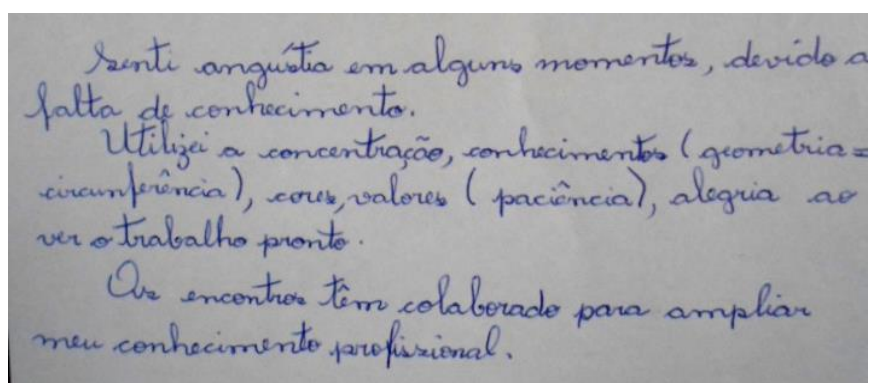 Senti angústia em alguns momentos, devido a
falta de conhecimento.
Utilizei a concentração, conhecimentos (geometria =
circunferência), cores, valores (paciência), alegria ao
ver o trabalho pronto.
Os encontros têm colaborado para ampliar
meu conhecimento profissional.